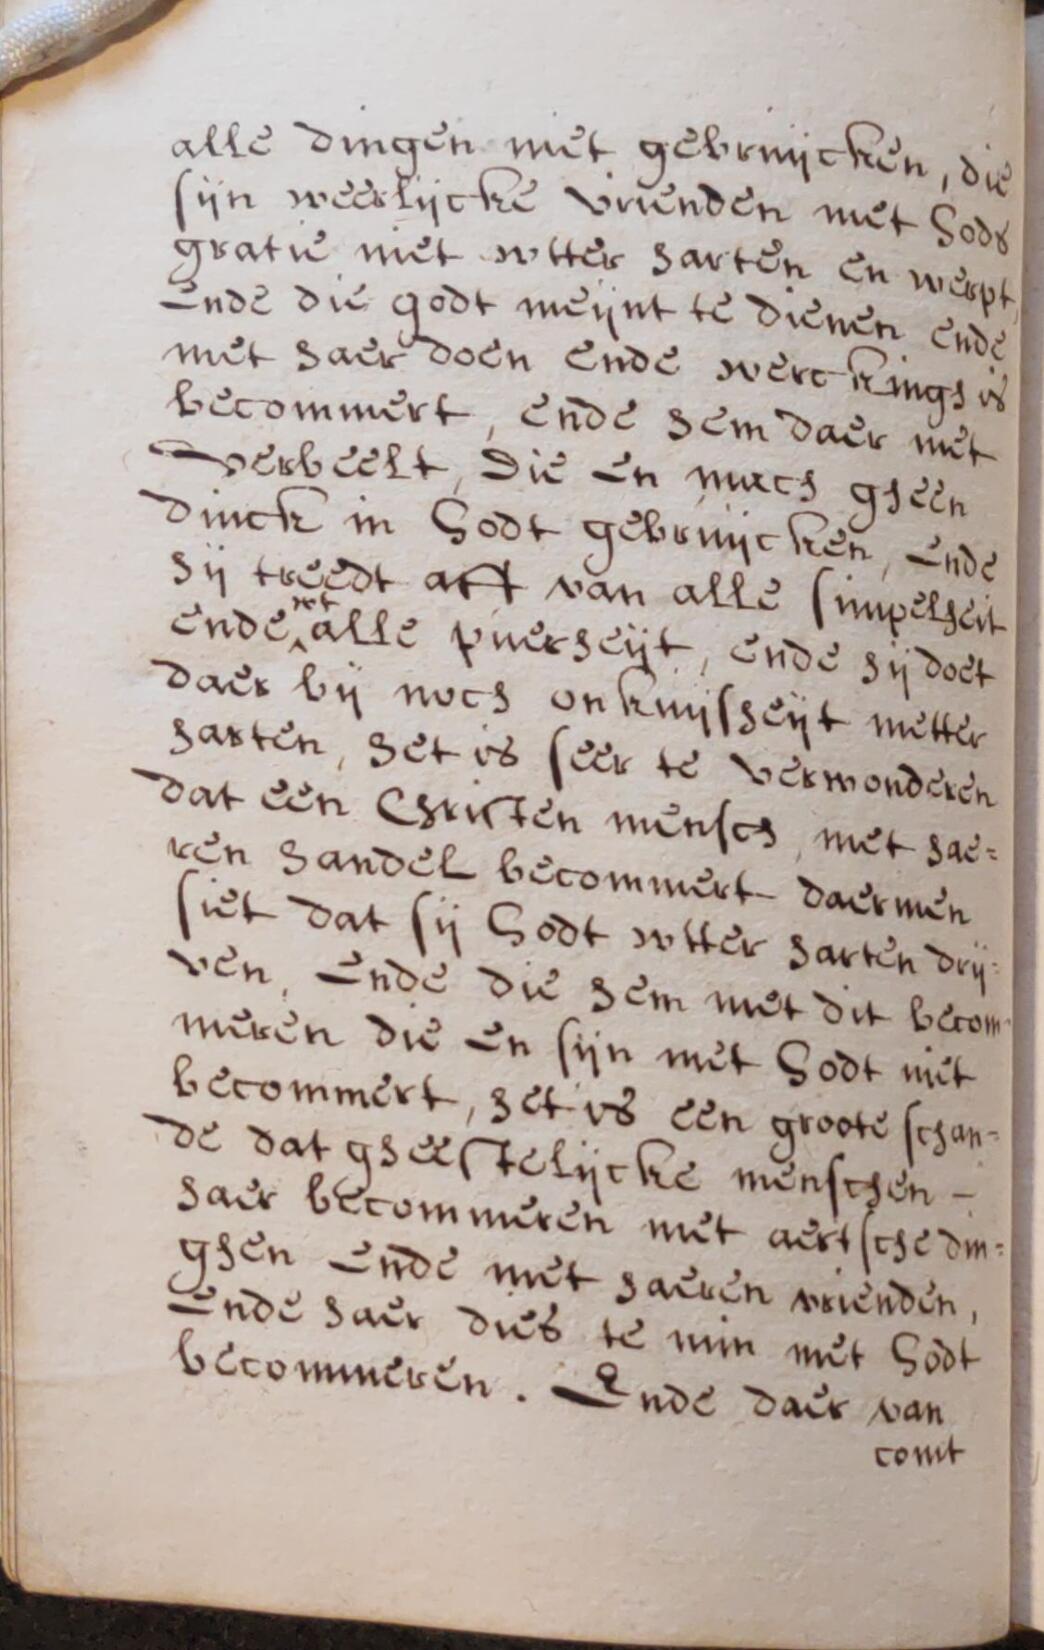 alle dingen niet gebruijcken, die
sijn weerlijcke vrienden met Gods
gratie niet wtter harten en werpt,
Ende die godt meijnt te dienen ende
met haer doen ende werckings is
becommert, ende hem daer met
verbeelt, Die en mach gheen
dinck in Godt gebruijcken, Ende
hij treedt aff van alle simpelheit
ende wt alle puerheijt, ende hij doet
daer bij noch onkuijsheijt metter
harten, het is seer te verwonderen
dat een Christen mensch, met hae=
ren handel becommert daermen
siet dat sij Godt wtter harten drij=
ven, Ende die hem met dit becom=
meren die en sijn met Godt niet
becommert, het is een groote schan=
de dat gheestelijcke menschen –
haer becommeren met aertsche din=
ghen Ende met haeren vrienden,
Ende haer dies te min met Godt
becommeren. Ende daer van
comt